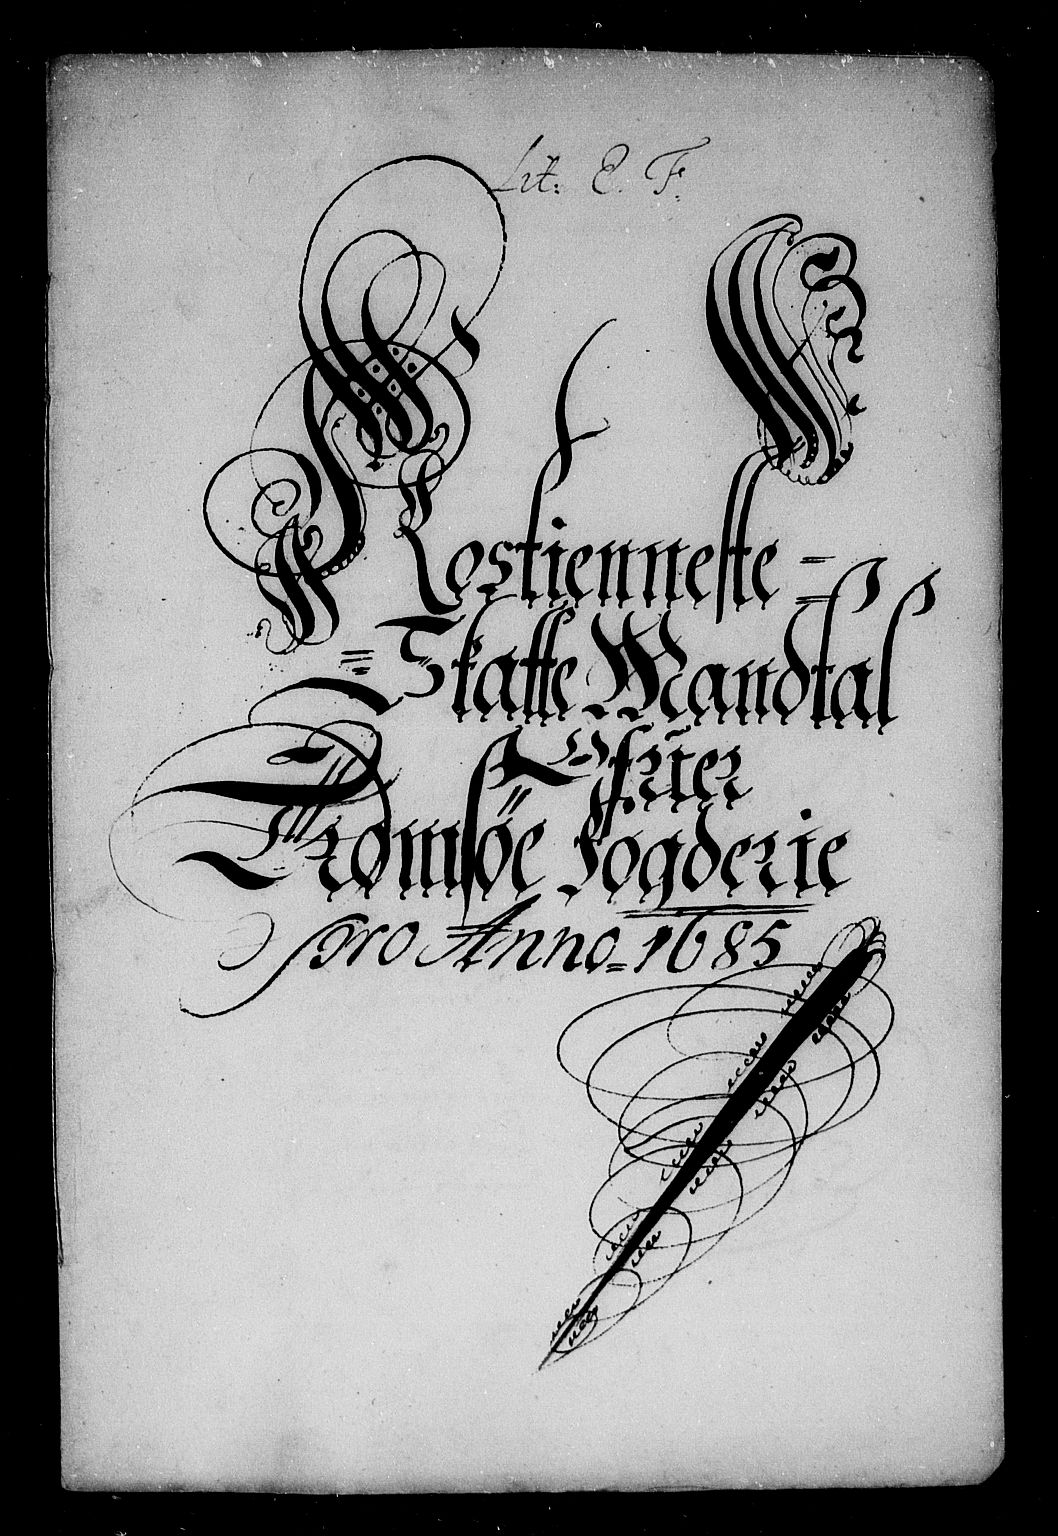 Lit: E. F.
Rostienneste =
= Skatte Mandtal
Ofr̃ter
Tromsöe Fogderie
pro Anno = 1685